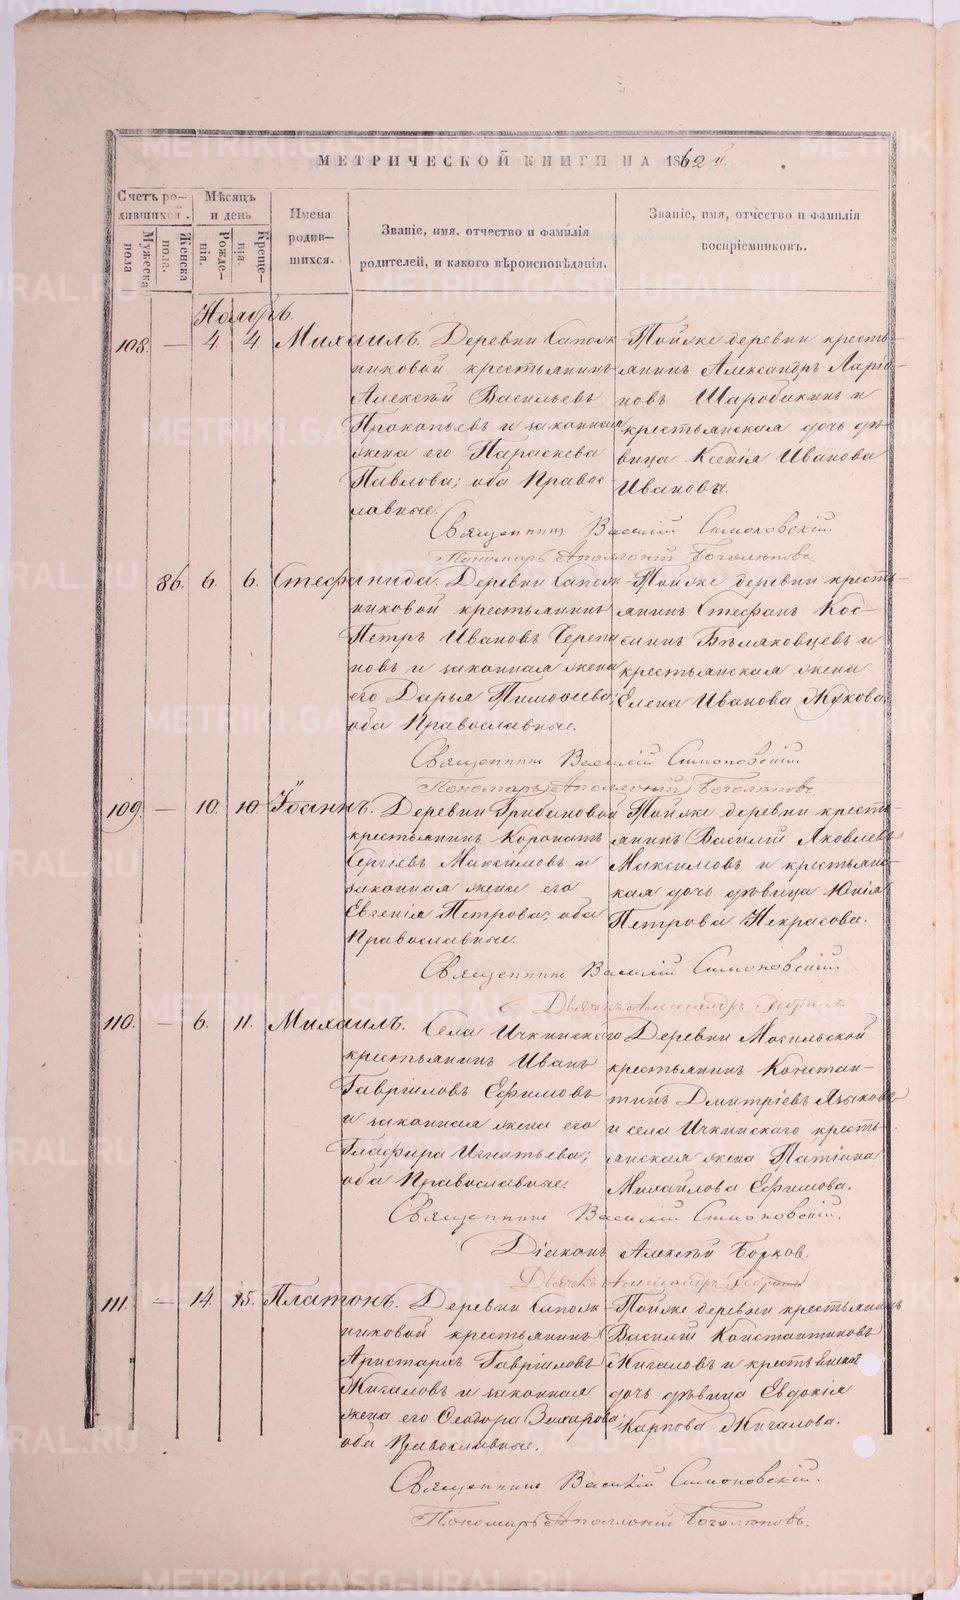 МЕТРИЧЕСКОЙ КНИГИ НА 1862 й
Счетъ ро-
дившихся.
Мужеска
пола
Женска
пола.
Мѣсяцъ
и день
Рожде-
нія.
Креще-
нія.
Имена
родив-
шихся.
Званіе, имя, отчество и фамилія
родителей, и какого вѣроисповѣданія.
Званіе, имя, отчество и фамилія
воспріемниковъ.
Ноябрь.
108. — 4. 4. Михаилъ. Деревни Сапож-
никовой крестьянинъ
Алексѣй Васильевъ
Прокопьевъ и законная
жена его Параскева
Павлова; оба Право-
славные.
Тойже деревни кресть-
янинъ Александръ Ларіо-
новъ Шаробакинъ и
крестьянская дочь дѣ-
вица Ксенія Иванова
Ивановы.
Священникъ Василій Симоновский.
Пономарь Аполлоній Боголюповъ
86. 6. 6. Стефанида. Деревни Сапож-
никовой крестьянинъ
Петръ Ивановъ Черепа
новъ и законная жена
его Дарья Тимоѳеева;
оба Православные.
Тойже деревни кресть-
янинъ Стефанъ Кос-
минъ Бѣляковцевъ и
крестьянская жена
Елена Иванова Жукова.
Священникъ Василій Симоновскій.
Пономарь Аполлоній Боголюповъ
109. — 10. 10. Іоаннъ. Деревни Грибановой
крестьянинъ Коронатъ
Сергіевъ Максимовъ и
законная жена его
Евгенія Петрова; оба
Православные.
Тойже деревни кресть-
янинъ Василій Яковлевъ
Максимовъ и крестьянс-
кая дочь дѣвица Юнія
Петрова Некрасова.
Священникъ Василій Симоновскій.
Дьячекъ Александръ
110. — 6. 11. Михаилъ. Села Ичкинскаго
крестьянинъ Иванъ
Гавріиловъ Ефимовъ
и законная жена его
Глафира Игнатьева;
оба Православные.
Деревни Могильской
крестьянинъ Констан-
тинъ Дмитріевъ Языковъ
и села Ичкинскаго кресть-
янская жена Татіана
Михайлова Ефимова.
Священникъ Василій Симоновскій.
Діаконъ Алексѣй Борков.
Дьячекъ Александръ
111. — 14. 15. Платонъ. Деревни Сапож-
никовой крестьянинъ
Аристархъ Гавріиловъ
Жигаловъ и законная
жена его Ѳеодора Захарова;
оба Православные.
Тойже деревни крестьянинъ
Василій Константиновъ
Жигаловъ и крестьянская
дочь дѣвица Евдокія
Карпова Жигалова.
Священникъ Василій Симоновскій.
Пономарь Аполлоній Боголюповъ.
METRIKI.GASO-URAL.RU